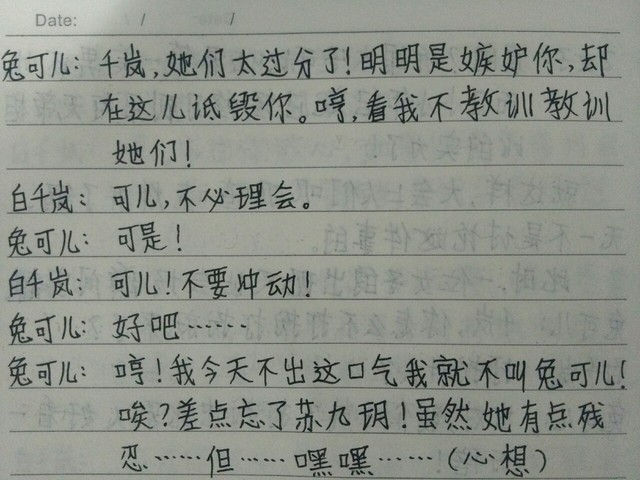 Date: / /
兔可儿：千岚，她们太过分了！明明是嫉妒你，却
在这儿诋毁你。哼，看我不教训教训
她们！
白千岚：可儿，不必理会。
兔可儿：可是！
白千岚：可儿！不要冲动！
兔可儿：好吧……
兔可儿：哼！我今天不出这口气我就不叫兔可儿！
唉？差点忘了苏九玥！虽然她有点残
忍……但……嘿嘿……（心想）